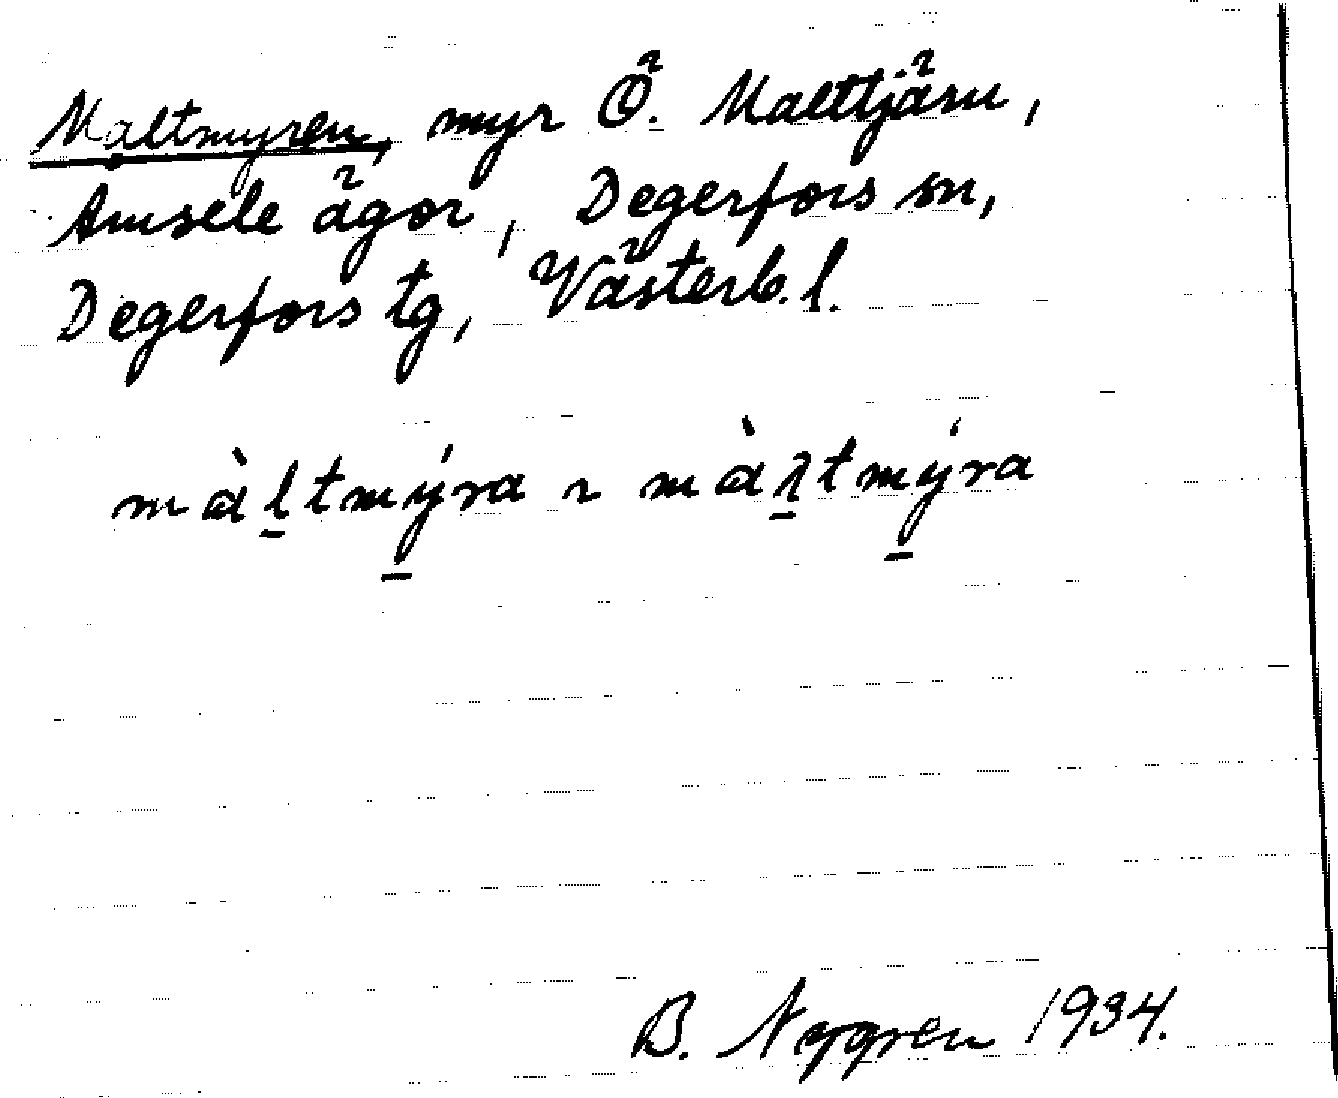 Maltmyren, myr Ö. Malttjärn,
Amsele ägor, Degerfors sn,
Degerfors tg, Västerb. l.
màl̠tmý̠ra ~ màɽ̠tmý̠ra
B. Nygren 1934.